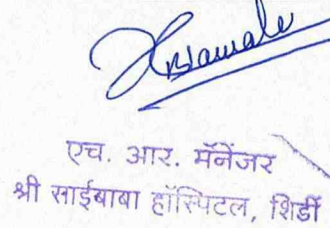 एच. आर. मॅनेंजर
श्री साईबाबा हॉस्पिटल, शिर्डी